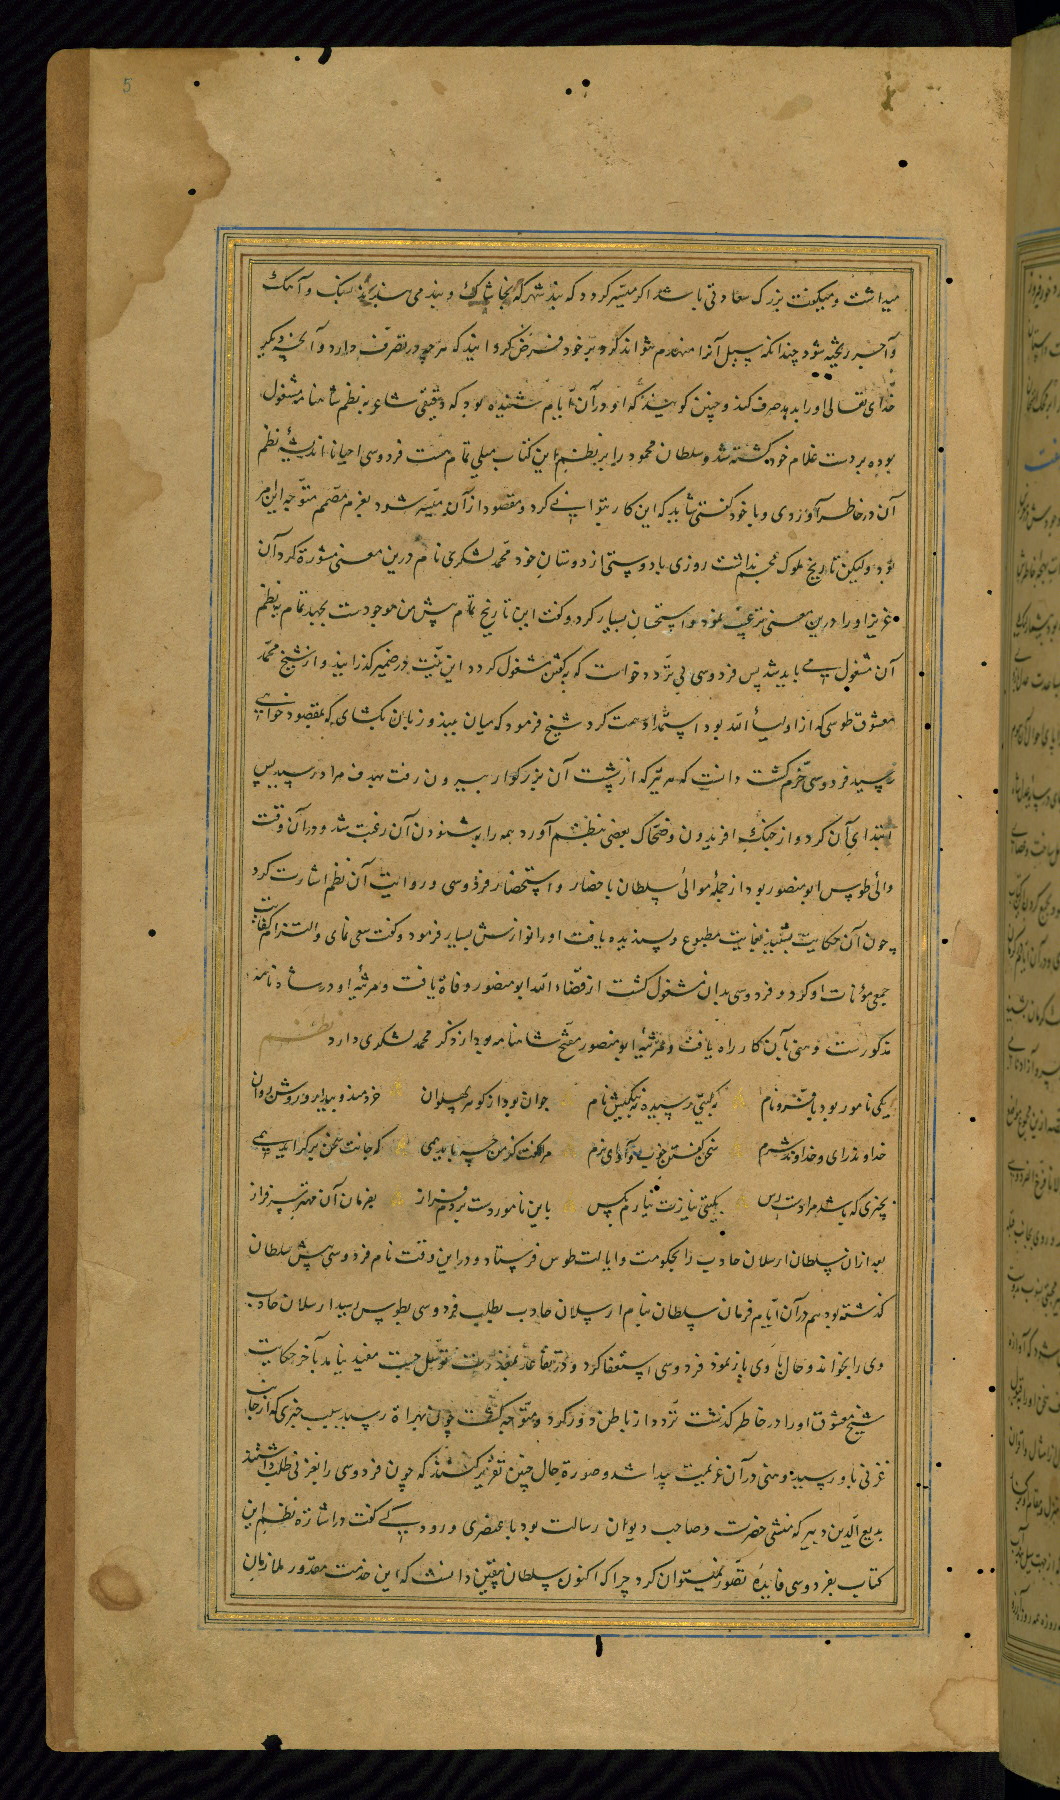 5
میداشت و میکفت بزرک سعادتی باشد اکر میسر کردد که بند شهر که بخاشاک و بند می بندند بسنک و آهک
و آجر ریخته شود چندانکه سیل آنرا منهدم نتواند کرد و بر خود فرض کرد اند که هر چه در تصرف دارد و آنچه دیکر
خدای تعالی او را بدهد صرف کند و چنین کویند که او در آن ایام شنیده بود که دقیقی شاعر به نظم شاهنامه مشغول
بوده بر دست غلام خود کشته شد و سلطان محمود را بر نظم این کتاب میلی تمام هست فردوسی احیانا اندیشهٔ نظم
آن در خاطر آوردی و با خود کفتی شاید که این کار بتوانی کرد و مقصود از آن میسر شود بعزم مصمم متوجه این امر
بود ولیکن تاریخ ملوک عجم نداشت روزی با دوستی از دوستان خود محمد لشکری نام درین معنی مشورة کرد آن
عزیز او را درین معنی ترغیب نمود و استحسان بسیار کرد و کفت این تاریخ تمام پیش من موجودست بجهد تمام به نظم
آن مشغول می باید شد پس فردوسی بی تردد خواست که به کفتن مشغول کردد این نیت در ضمیر کذرانید و از شیخ محمد
معشوق طوسی که از اولیاء الله بود استمداد همت کرد شیخ فرمود که میان ببند و زبان بکشای که بمقصود خواهی
رسید فردوسی خرم کشت دانست که هر تیر که از شست آن بزرکوار بیرون رفت بهدف مراد رسید پس
ابتدای آن کرد و از جنک افریدون و ضحاک بعضی بنظم آورد همه را بشنودن آن رغبت شد و در آن وقت
والئ طوس ابو منصور بود از جملهٔ موالئ سلطان باحضار و استحضار فردوسی و روایت آن نظم اشارت کرد
چون آن حکایت بشنید بغایت مطبوع و پسندیده یافت او را نوازش بسیار فرمود و کفت سعی نمای و التزام کفایت
جمیع مؤنات او کرد و فردوسی بدان مشغول کشت از قضاء الله ابو منصور وفاة یافت و مرثیهٔ او در شاه نامه
مذکورست و سخن بآن کار راه یافت و مرثیهٔ ابو منصور مفتح شاهنامه و بدار ذکر محمد لشکری دارد نظم
یکی نامور بود با فر و نام که کیتی رسیده به نیکیش نام جوان بود از کوهر پهلوان خردمند و بیدار و روشن روان
خداوند رای و خداوند شرم سخن کفتن خوب و آوای نرم مرا کفت کز من چه باید همی که جانت سخن بر کراید همی
بچیزی که باشد مرا دست رس بکیتی نیازت نیارم بکس باین نامور دست بردم فراز بفرمان آن مهتر سرفراز
بعد از ان سلطان ارسلان حاذب را بحکومت و ایالت طوس فرستاد و در این وقت نام فردوسی پیش سلطان
کذشته بود هم در آن ایام فرمان سلطان بنام ارسلان حاذب بطلب فردوسی بطوس رسید ارسلان حاذب
وی را بخواند و حال با وی باز نمود فردوسی استعفا کرد و در تقاعد بمعذرت توسل جست مفید نیامد بآخر حکایت
شیخ معشوق او را در خاطر کذشت تردد از باطن دور کرد و متوجه کشت چون بهراة رسید بسبب خبری که از جانب
غزنی باو رسید وهنی در آن عزیمت پیدا شد و صورة حال چنین تقریر کنند که چون فردوسی را بغزنی طلب داشتند
بدیع الدین دبیر که منشی حضرت و صاحب دیوان رسالت بود با عنصری و رودکی کفت در اشارة نظم این
کتاب بفردوسی فایدهٔ تصور نمیتوان کرد چرا که اکنون سلطان بیقین دانست که این خدمت مقدور ملازمان